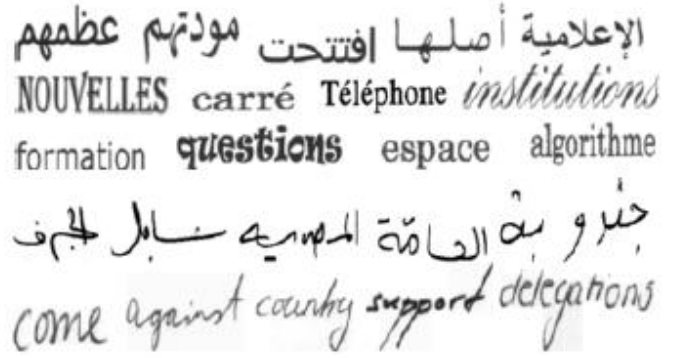 الإعلامية أصلها افتتحت مودتهم عظمهم
NOUVELLES carré Téléphone institutions
formation questions espace algorithme
العامة المصرية
come against country support delegations